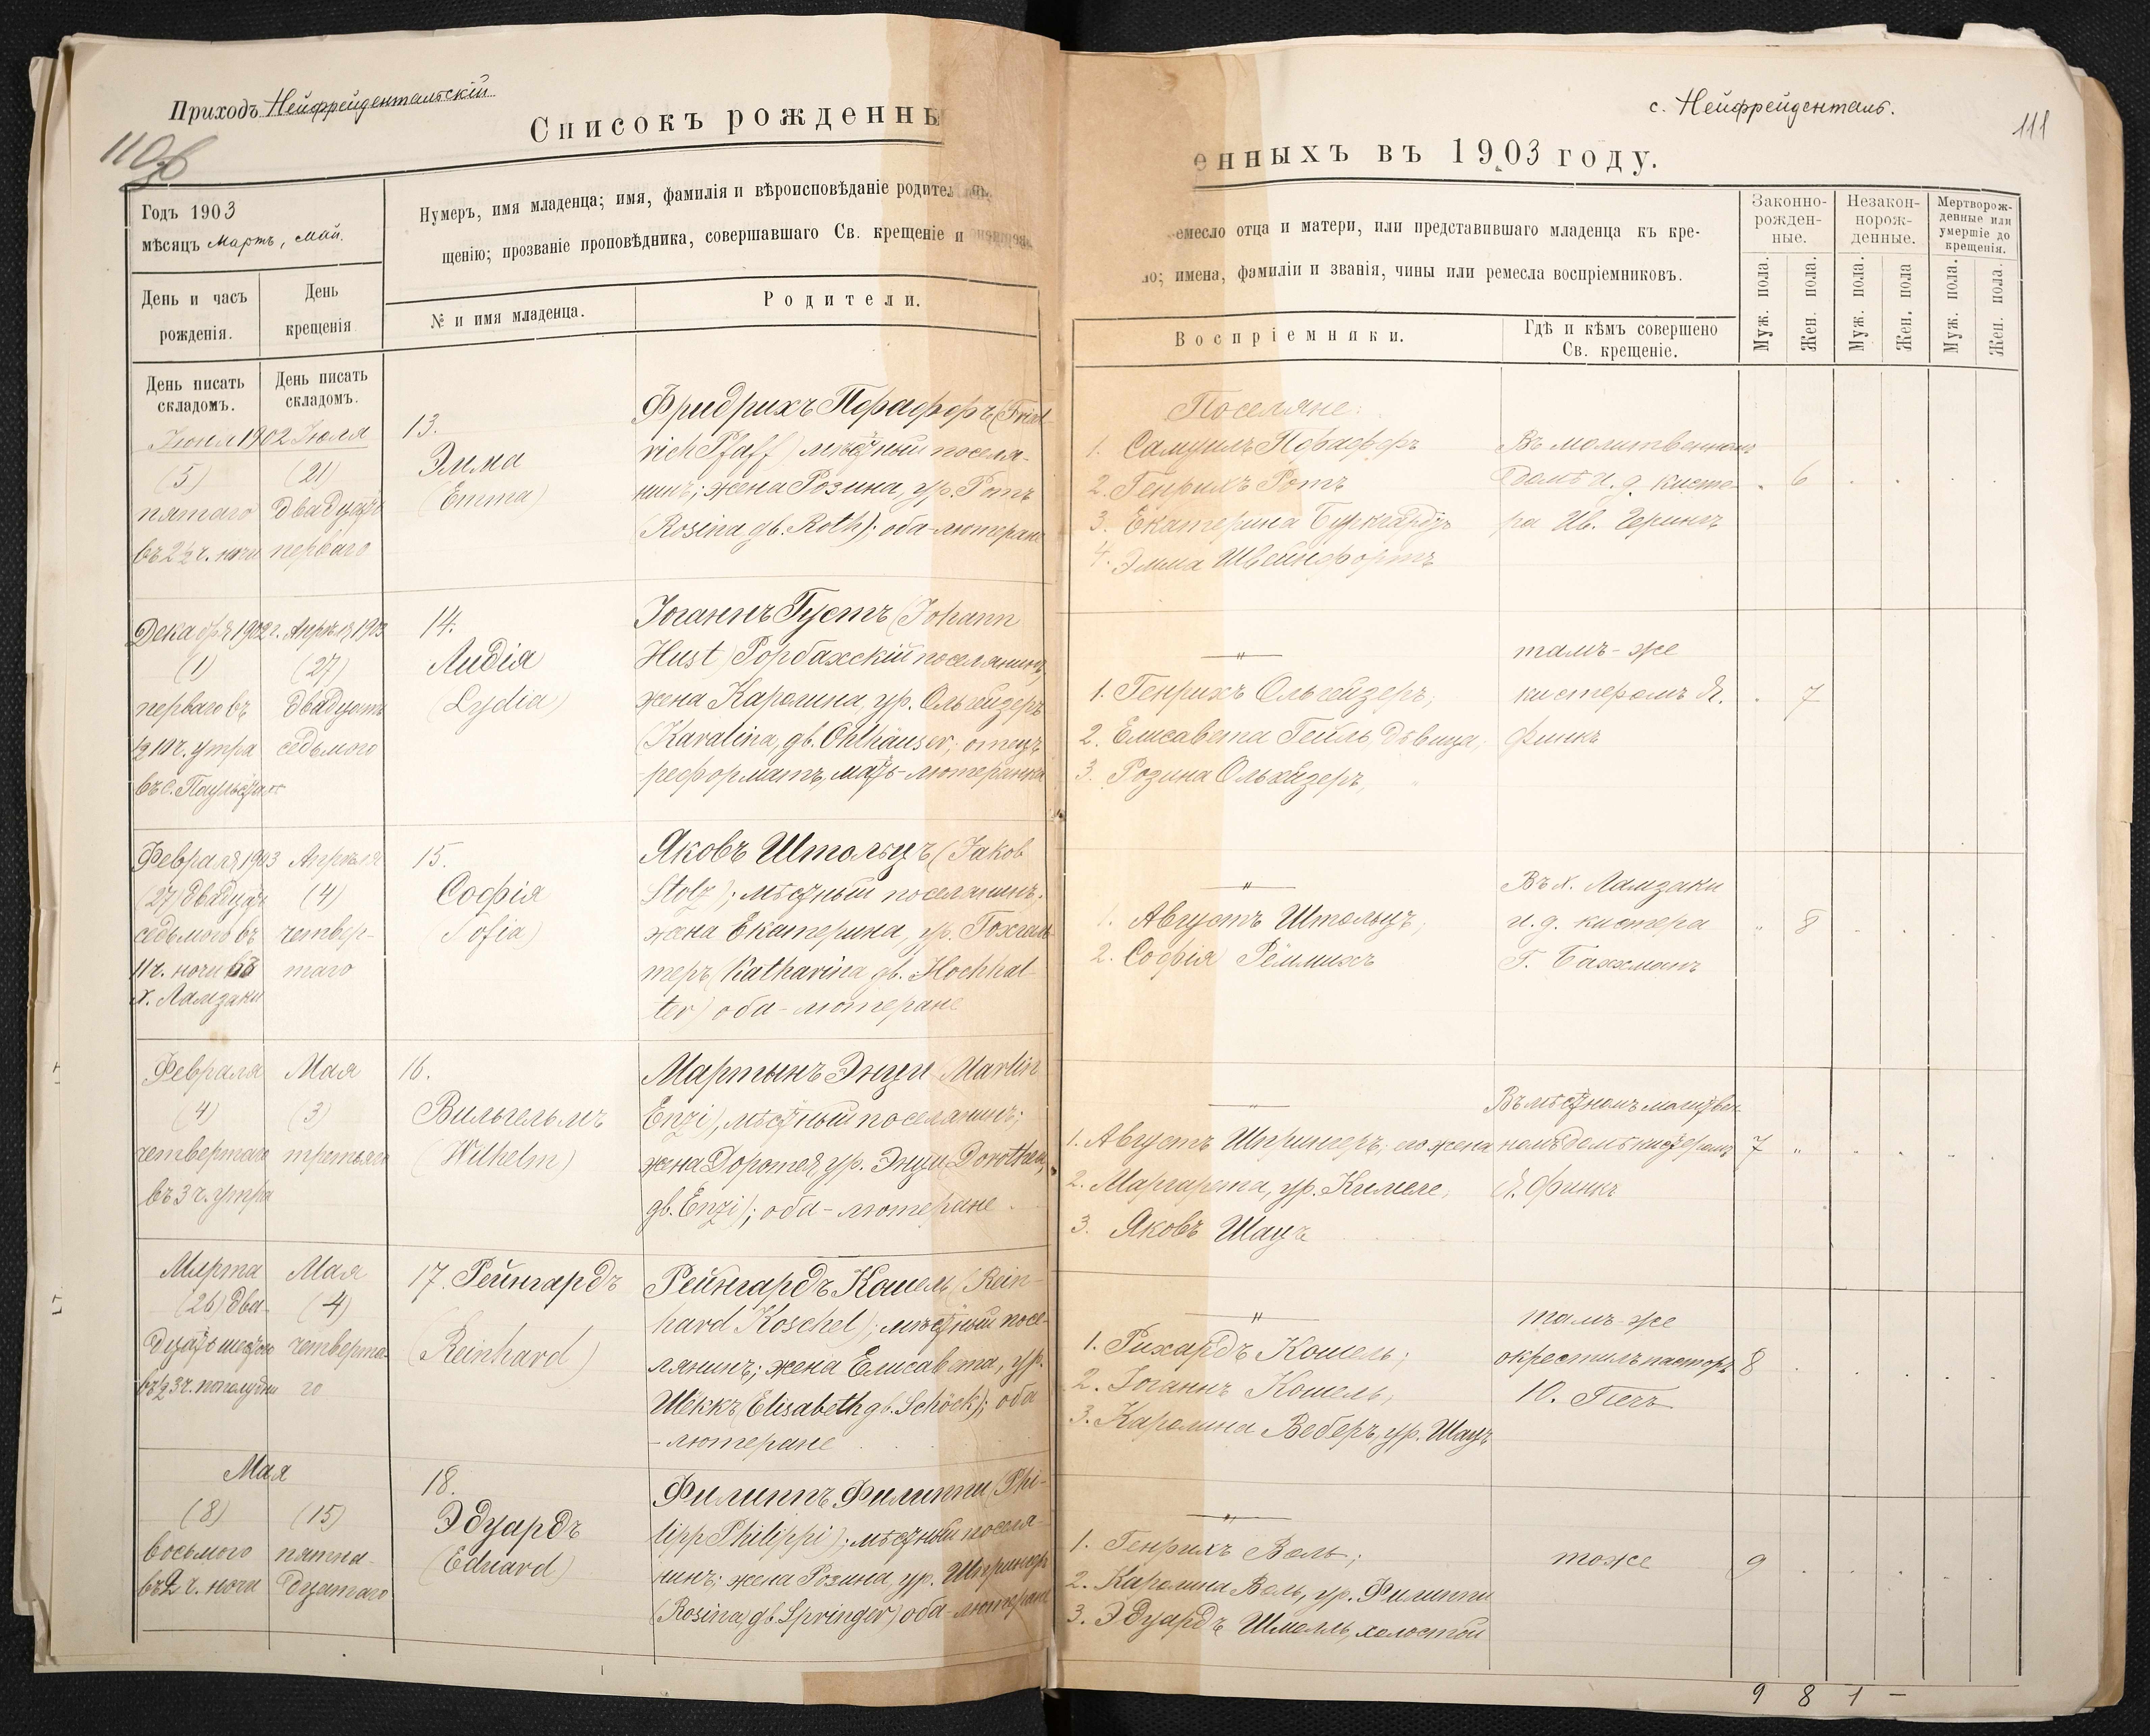 Приходъ Нейфрейдентальскій
110 об
Списокъ рожденны
Годъ 1903
мѣсяцъ Мартъ, Май.
Нумеръ, имя младенца; имя, фамилія и вѣроисповѣданіе родител
щенію; прозваніе проповѣдника, совершавшаго Св. крещеніе и
День и часъ рожденія.
День крещенія
№ и имя младенца.
Родители.
День писать складомъ.
День писать складомъ.
Іюня 1902 Іюля
(5) (21)
пятаго двадцать
въ 2½ ч. ночи перваго
13.
Эмма
(Emma)
Фридрихъ Пфаффъ (Fried-
rich Pfaff) мѣстный поселя-
нинъ; жена Розина, ур. Ротъ
(Rosina gb. Roth); оба-лютеране
Декабря 1902 г. Апрѣля 1903
(1) (27)
перваго въ двадцать
½ 10 ч. утра седьмого
14.
Лидія
(Lydia)
Іоганнъ Густъ (Johann
Hust) Рорбахскій поселянинъ,
жена Каролина, ур. Ольгейзеръ
(Karalina, gb. Ohlhäuser; отецъ
реформатъ, мать-лютеранка
Февраля 1903 Апрѣля
(27) двадцать (4)
седьмого въ четвер-
11 ч. ночи въ таго
х. Ламзаки
15.
Софія
(Sofia)
Яковъ Штольцъ (Jakob
Stolz); мѣстный поселянинъ.
жена Екатерина, ур. Гохгаль-
теръ (Katharina gb. Hochhal-
ter) оба-лютеране
Февраля Мая
(4) (3)
четвертаго третьяго
въ 3 ч. утра
16.
Вильгельмъ
(Wilhelm)
Мартынъ Энци (Martin
Enzi), мѣстный поселянинъ;
жена Доротея ур. Энци (Dorothea,
gb. Enzi); оба-лютеране
Марта Мая
(26) два- (4)
дцать шестого четверта-
въ ½ 3 ч. пополудни го
17. Рейнгардъ
(Reinhard)
Рейнгардъ Кошель (Rein-
hard Koschel); мѣстный посе-
лянинъ; жена Елисавета, ур.
Шёккъ (Elisabeth gb. Schöck); оба
-лютеране
Мая
(8) (15)
восьмого пятна-
въ 2 ч. ночи дцатаго
18.
Эдуардъ
(Eduard)
Филиппъ Филиппи (Phi-
lipp Philippi); мѣстный поселя-
нинъ; жена Розина, ур. Шпрингеръ
(Rosina gb. Springer) оба-лютеране
с. Нейфрейденталь.
111
енныхъ въ 1903 году.
емесло отца и матери, или представившаго младенца къ кре-
ло; имена, фамиліи и званія, чины или ремесла воспріемниковъ.
Воспріемники.
Гдѣ и кѣмъ совершено Св. крещеніе.
Законно-рожден-ные.
Незакон-норож-денные.
Мертворож-денные или умершіе до крещенія.
Муж. пола.
Жен. пола.
Муж. пола.
Жен. пола
Муж. пола.
Жен. пола.
Поселяне:
1. Самуилъ Пфаффъ
2. Генрихъ Ротъ
3. Екатерина Буркгардтъ
4. Эмма Швейнфортъ
Въ молитвенномъ
домѣ и. д. кисте-
ра Ив. Герингъ
6
„
1. Генрихъ Ольгейзеръ;
2. Елисавета Гейль, дѣвица;
3. Розина Ольхейзеръ,
тамъ-же
кистеромъ Я.
Финкъ
7
„
1. Августъ Штольцъ,
2. Софія Рёммихъ
Въ х. Ламзаки
и. д. кистера
Г. Бахманъ
8
1. Августъ Шпрингеръ, его жена
2. Маргарета, ур. Киммле,
3. Яковъ Шауъ
Въ мѣстномъ молитвен-
номъ домѣ кистеромъ
Я. Финкъ
7
„
1. Рихардъ Кошель;
2. Іоганнъ Кошель,
3. Каролина Веберъ, ур. Шауъ
тамъ-же
окрестилъ пасторъ
8
„
1. Генрихъ Воль;
2. Каролина Воль, ур. Филиппи
3. Эдуардъ Шмолль, холостой
тоже
9
9 8 1 –